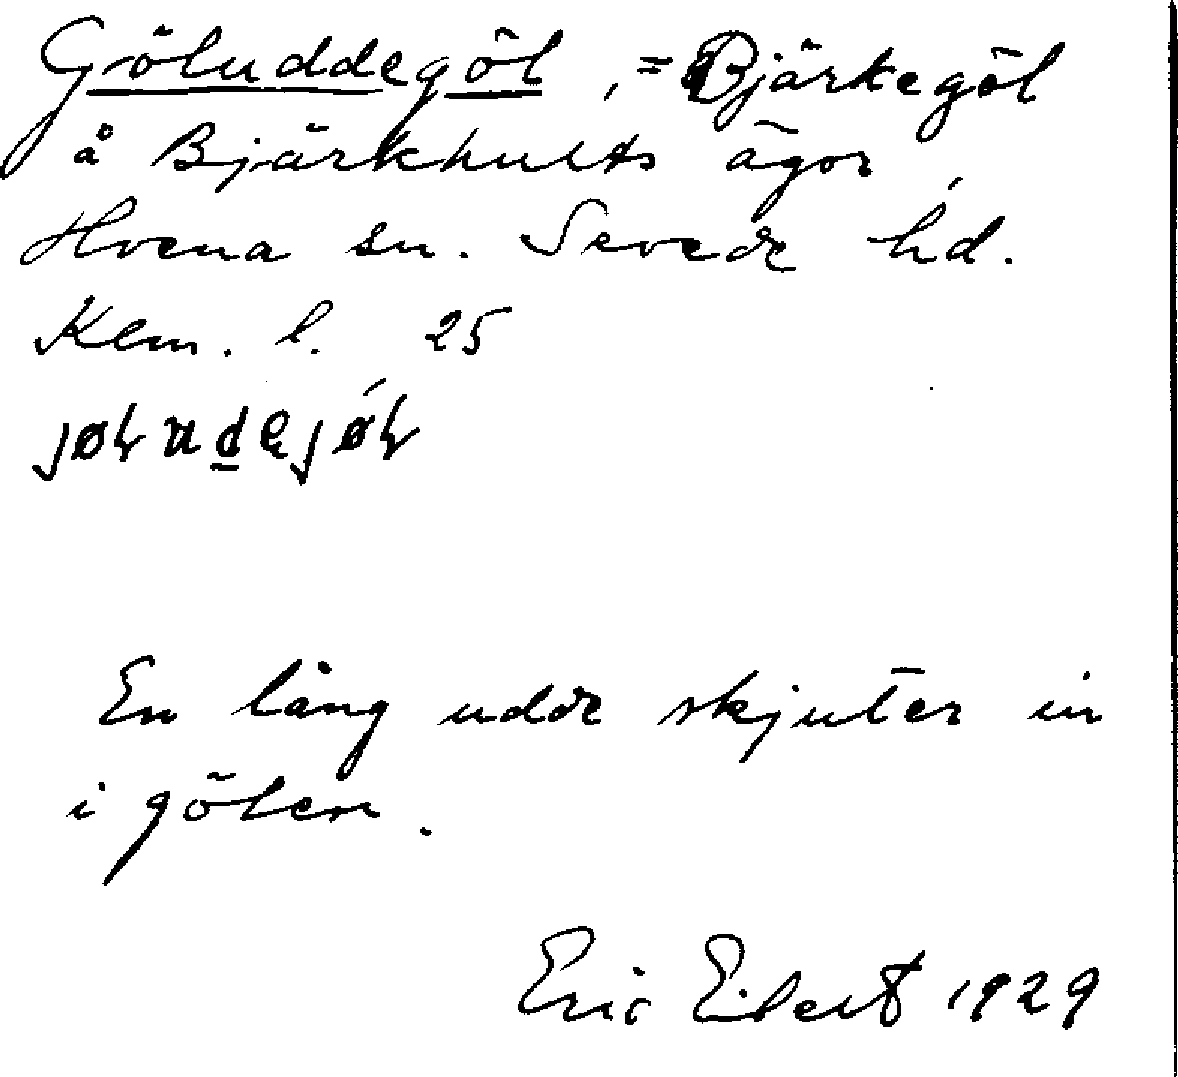 Göluddegöl, = Bjärkegöl
å Bjärkhults ägor
Hvena sn. Sevede hd.
Klm. l. 25
En lång udde skjuter in
i gölen.
Eric 1929